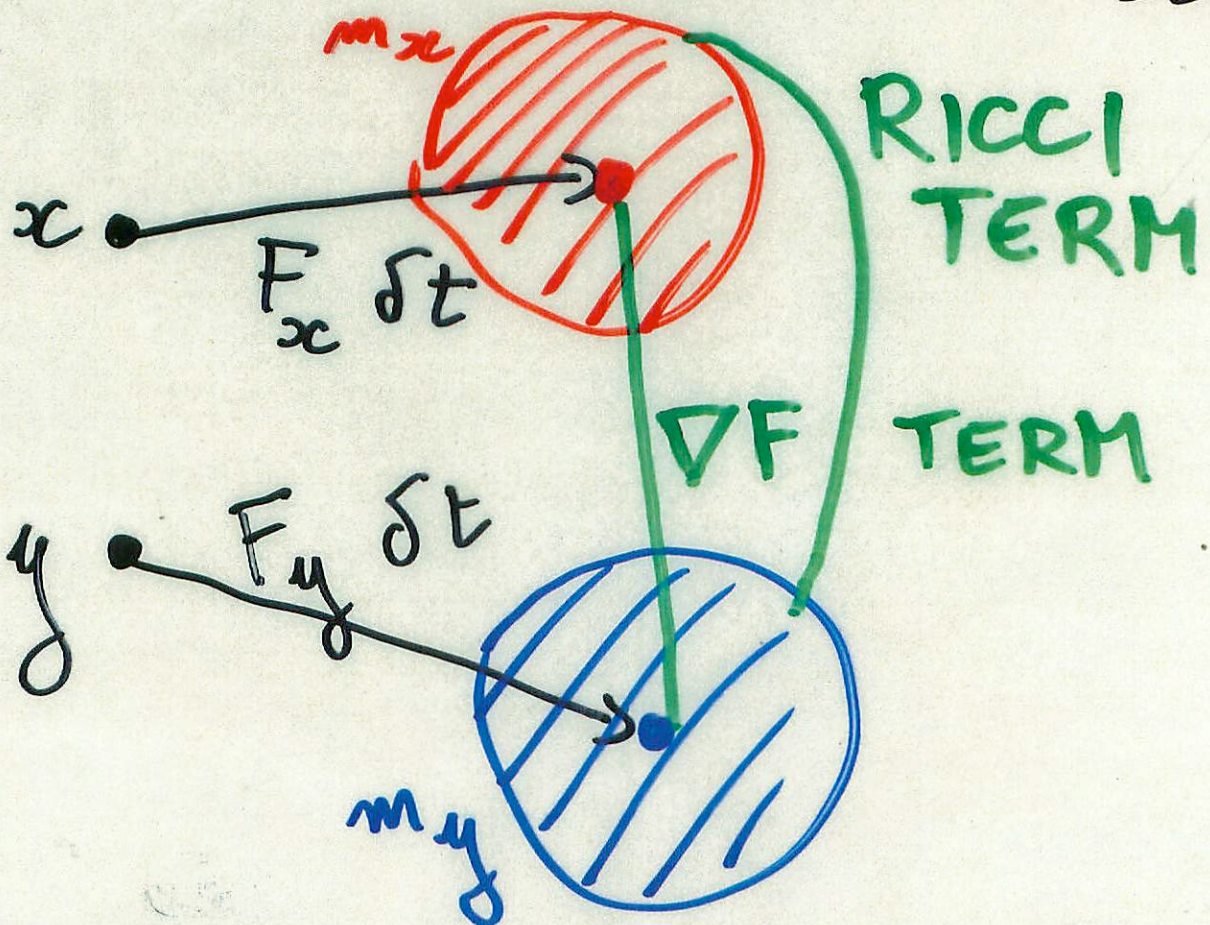 m_x
RICCI
TERM
x
F_x δt
∇F TERM
y
F_y δt
m_y